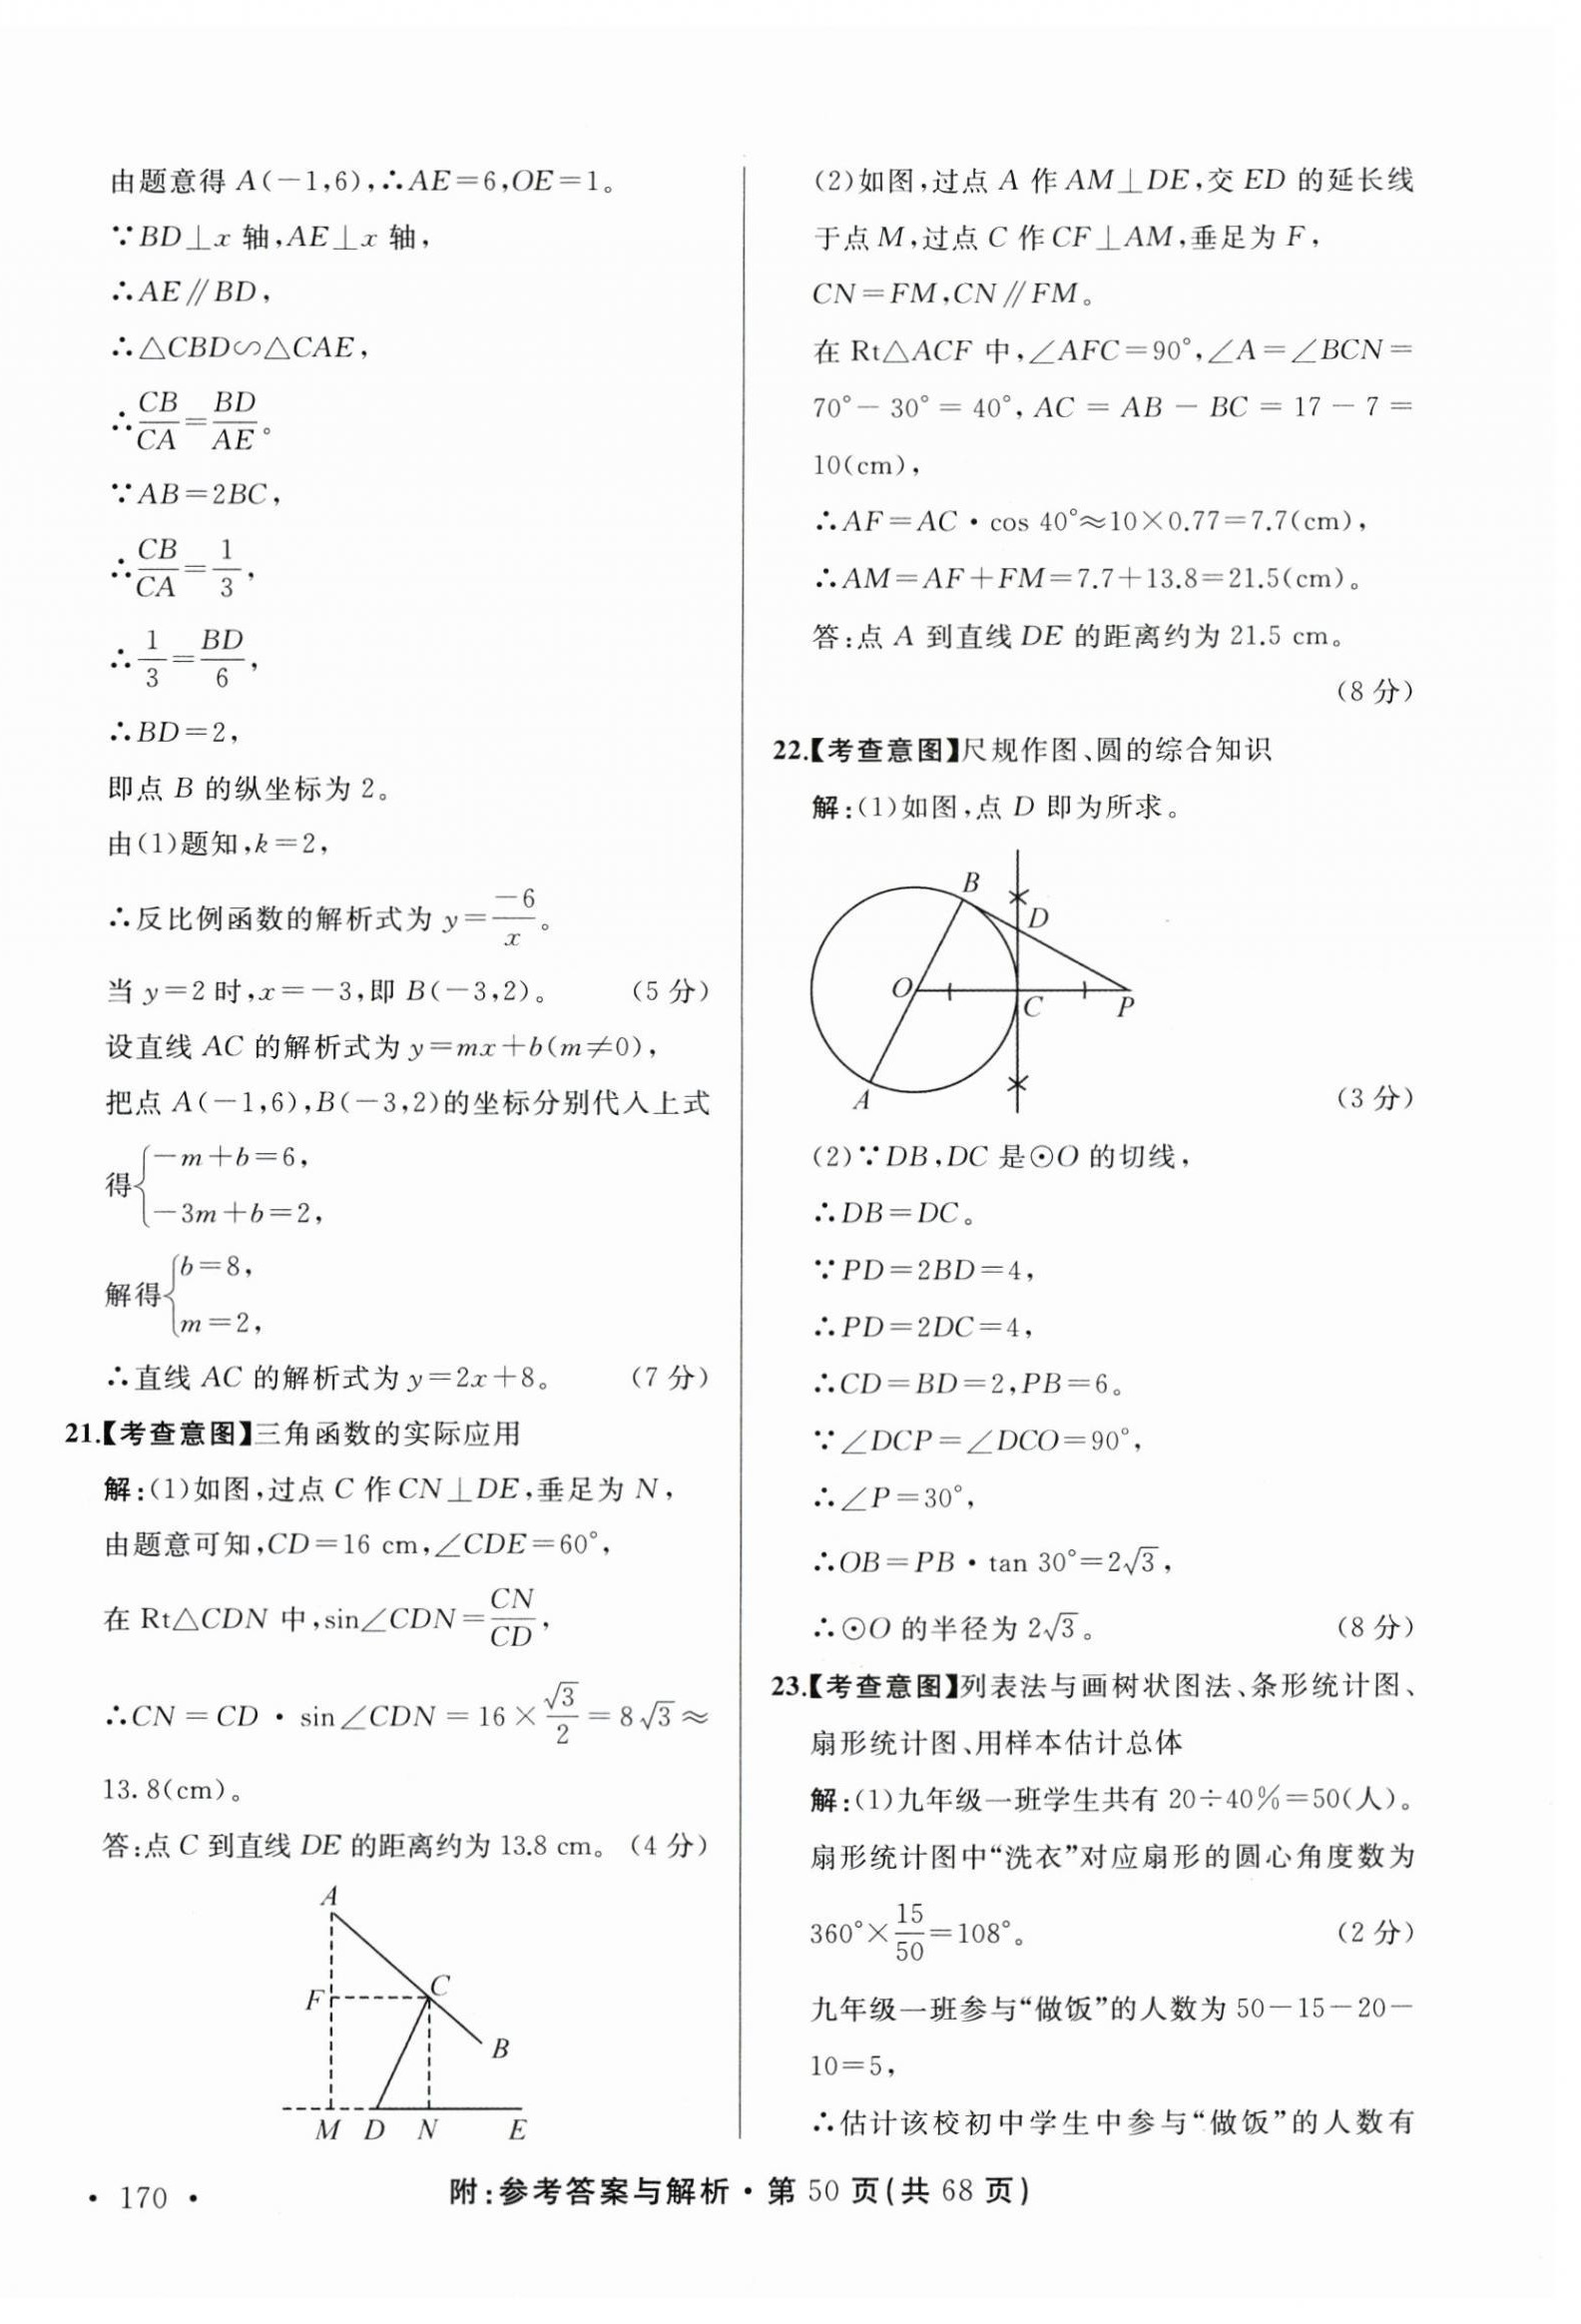 由题意得 A(−1,6),∴AE=6,OE=1。
∵BD⊥x 轴,AE⊥x 轴,
∴AE∥BD,
∴△CBD∽△CAE,
∴CB/CA=BD/AE。
∵AB=2BC,
∴CB/CA=1/3,
∴1/3=BD/6,
∴BD=2,
即点 B 的纵坐标为 2。
由(1)题知,k=2,
∴反比例函数的解析式为 y=−6/x。
当 y=2 时,x=−3,即 B(−3,2)。 (5 分)
设直线 AC 的解析式为 y=mx+b(m≠0),
把点 A(−1,6),B(−3,2)的坐标分别代入上式
得{−m+b=6,
−3m+b=2,
解得{b=8,
m=2,
∴直线 AC 的解析式为 y=2x+8。 (7 分)
21.【考查意图】三角函数的实际应用
解:(1)如图,过点 C 作 CN⊥DE,垂足为 N,
由题意可知,CD=16 cm,∠CDE=60°,
在 Rt△CDN 中,sin∠CDN=CN/CD,
∴CN=CD·sin∠CDN=16×√3/2=8√3≈
13.8(cm)。
答:点 C 到直线 DE 的距离约为 13.8 cm。(4 分)
A
F
C
B
M D N E
(2)如图,过点 A 作 AM⊥DE,交 ED 的延长线
于点 M,过点 C 作 CF⊥AM,垂足为 F,
CN=FM,CN∥FM。
在 Rt△ACF 中,∠AFC=90°,∠A=∠BCN=
70°−30°=40°,AC=AB−BC=17−7=
10(cm),
∴AF=AC·cos 40°≈10×0.77=7.7(cm),
∴AM=AF+FM=7.7+13.8=21.5(cm)。
答:点 A 到直线 DE 的距离约为 21.5 cm。
(8 分)
22.【考查意图】尺规作图、圆的综合知识
解:(1)如图,点 D 即为所求。
B
D
O
C
P
A
(3 分)
(2)∵DB,DC 是⊙O 的切线,
∴DB=DC。
∵PD=2BD=4,
∴PD=2DC=4,
∴CD=BD=2,PB=6。
∵∠DCP=∠DCO=90°,
∴∠P=30°,
∴OB=PB·tan 30°=2√3,
∴⊙O 的半径为 2√3。 (8 分)
23.【考查意图】列表法与画树状图法、条形统计图、
扇形统计图、用样本估计总体
解:(1)九年级一班学生共有 20÷40%=50(人)。
扇形统计图中“洗衣”对应扇形的圆心角度数为
360°×15/50=108°。 (2 分)
九年级一班参与“做饭”的人数为 50−15−20−
10=5,
∴估计该校初中学生中参与“做饭”的人数有
• 170 •
附:参考答案与解析·第 50 页(共 68 页)